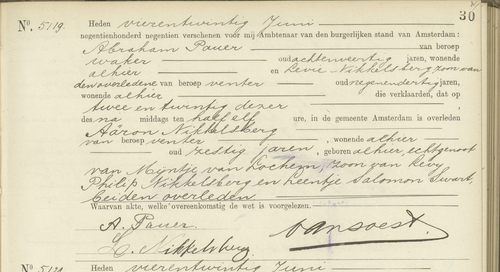 30
No. 5119. Heden vierentwintig Juni
negentienhonderd negentien verschenen voor mij Ambtenaar van den burgerlijken stand van Amsterdam:
Abraham Pauer van beroep
waker oud achtenveertig jaren, wonende
alhier en Levie Nikkelsberg zoon van
den overledene van beroep venter oud negenendertig jaren,
wonende alhier die verklaarden, dat op
twee en twintig dezer
des na middags ten half elf ure, in de gemeente Amsterdam is overleden
Aäron Nikkelsberg
van beroep venter, wonende alhier
oud zestig jaren, geboren alhier, echtgenoot
van Mijntje van Lochem, zoon van Levy
Philip Nikkelsberg en Leentje Salomon Swart,
beiden overleden.
Waarvan akte, welke overeenkomstig de wet is voorgelezen.
A. Pauer.
L. Nikkelsberg
van Soest.
No. Heden vierentwintig Juni